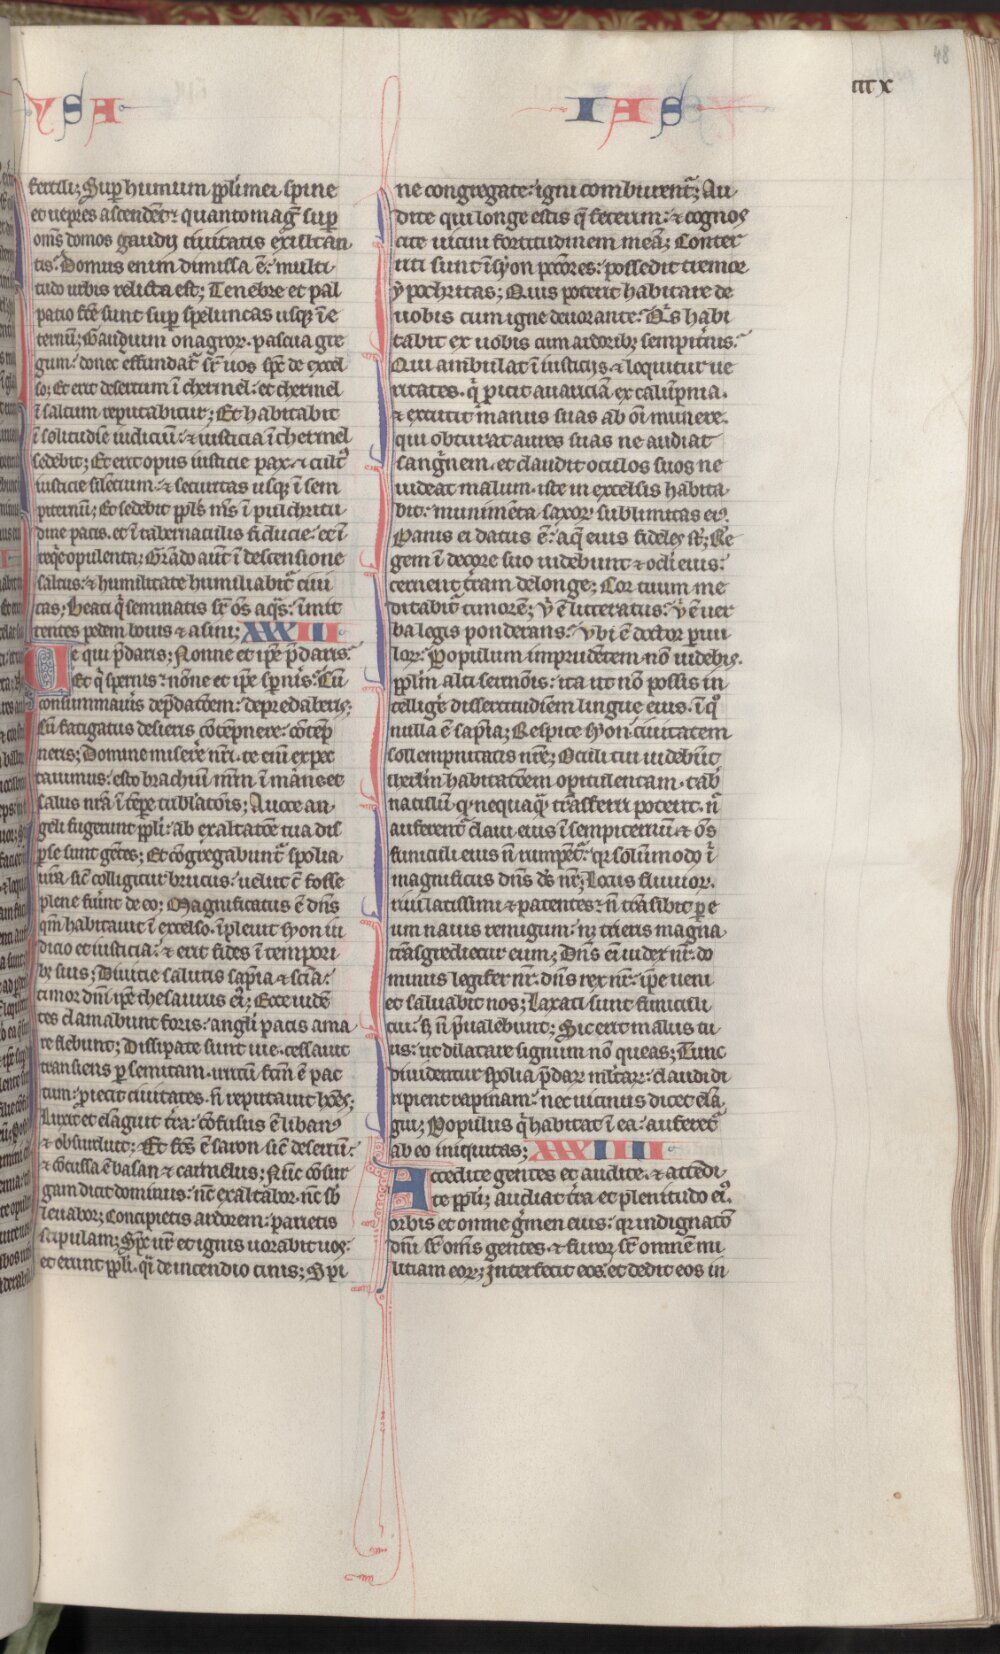 48
YSA
IAS
iii x
fertili; Sup humum ppli mei spine
et uepres ascendēt᛫ quanto mag̃ sup
om̄s domos gaudij ciuitatis exultan
tis. Domus enim dimissa ē. multi
tudo urbis relicta est; Tenebre et pal
patio fc̄e sunt sup speluncas usqꝫ ī e
ternū; Gaudium onagroꝝ. pascua gre
gum. donec effundat᷑ sr̄ uos sp̄c de excel
so; Et erit desertum ī chermel. et chermel
ī saltum reputabitur; Et habitabit
ī solitudīe iudiciū. ⁊ iusticia ī chermel
sedebit; Et erit opus iusticie pax. ⁊ cult᷑
iusticie silencium. ⁊ securitas usqꝫ ī sem
piternū; Et sedebit ppl̄s m̄s ī pulchritu
dine pacis. et ī tabernaculis fiducie. et ī
req̄e opulenta; Grādo aut̄ ī descensione
saltus. ⁊ humilitate humiliabit᷑ ciui
tas; Beati q̄ seminatis sr̄ ōs aq̄s. īmit
tentes pedem bouis ⁊ asini; XXXIII
Ue qui p̄daris; Nonne et ipē p̄daris.
Et q̄ spernis. nōne et ipē spernis. Cū
consummauīs dep̄datōem. depredaberis;
Cū fatigatus desieris cōtēpnere. cōtēp
neris; Domine miserē nr̄i. te eni᷑ expec
tauimus. esto brachiū nr̄m ī māne et
salus nr̄a ī tēpe tribl̄atōis; A uoce an
geli fugerunt ppli. ab exaltatōe tua dis
pse sunt gētes; Et cōgregabunt᷑ spolia
ur̄a sic̄ colligitur brucus. uelut c̄ fosse
plene fuīnt de eo; Magnificatus ē dn̄s
qm̄ habitauit ī excelso. īpleuit syon iu
dicio et iusticia. ⁊ erit fides ī tempori
bꝫ suis; Diuitie salutis sap̄ia ⁊ sc̄ia.
timor dn̄i ipē thesaurus ei᷒; Ecce uidē
tes clamabunt foris. angl̄i pacis ama
re flebunt; Dissipate sunt uie. cessauit
transiens p semitam. irritū fc̄m ē pac
tum. piecit ciuitates. n̄ reputauit hoīes;
Luxit et elāguit tr̄a. cōfusus ē liban᷒
⁊ obsorduit; Et fc̄s ē saron sic̄ desertū.
⁊ cōcussa ē basan ⁊ carmelus; Nūc cōsur
gam dicit dominus. nc̄ exaltabor. nc̄ sb̄
leuabor; Concipietis ardorem. parietis
stipulam; Sp̄c ur̄ et ignis uorabit uos.
et erunt ppli. q̄i de incendio cinis; Spi
ne congregate. igni comburent᷑; Au
dite qui longe estis q̄ fecerim. ⁊ cognos
cite uicini fortitudinem meā; Conter
riti sunt ī syon pctōres. possedit tremor
ypochritas; Quis poterit habitare de
uobis cum igne deuorante. Q̄s habi
tabit ex uobis cum ardoribꝫ sempit̄nis.
Qui ambulat ī iusticijs. ⁊ loquitur ue
ritates. q̄ piicit auariciā ex calūpnia.
⁊ excutit manus suas ab oī munere.
qui obturat aures suas ne audiat
sangnem. et claudit oculos suos ne
uideat malum. iste in excelsis habita
bit. munimēta saxoꝝ sublimitas ei᷒.
Panis ei datus ē. aq̄ eius fideles sт̄; Re
gem ī decore suo uidebunt ⁊ ocl̄i eius.
cernent tr̄am de longe; Cor tuum me
ditabit᷑ timorē; ỹ ē litteratus. ỹ ē uer
ba legis ponderans. ybi ē doctor paruu
loꝝ. Populum imprudētem nō uidebis.
pplm̄ alti sermōis. ita ut nō possis in
tellige᷑ dissertitudīem lingue eius. ī qͦ
nulla ē sap̄ia; Respice syon ciuitatem
sollempnitatis nr̄e; Oculi tui uidebūt
ihrl̄m habitatōem opulentam. tab̄
naculū qͥ nequaq̄ trāsferri poterit. n̄
auferent᷑ claui eius ī sempiternū ⁊ ōs
funiculi eius n̄ rumpēt᷑. qꝛ solūmodo ī
magnificus dn̄s ds̄ nr̄; Locus fluuioꝝ.
riui latissimi ⁊ patentes. n̄ trāsibit p e
um nauis remigum. nqꝫ trieris magna
trāsgredietur eum; Dn̄s eī iudex nr̄. do
minus legifer nr̄. dn̄s rex nr̄. ipē ueni
et saluabit nos; Laxati sunt funiculi
tui. ſꝫ n̄ p̄ualebunt; Sic erit malus tu
us. ut dilatare signum nō queas; Tunc
diuidentur spolia p̄daꝝ mltaꝝ. claudi di
ripient rapinam. nec uicinus dicet elā
gui; Populus q̄ habitat ī ea. auferet᷑
ab eo iniquitas; XXXIIII
Accedite gentes et audite. ⁊ accedi
te ppli; audiat tr̄a et plenitudo ei᷒.
orbis et omne gm̄en eius. qꝛ indignatō
dn̄i sr̄ om̄s gentes. ⁊ furor sr̄ omnē mi
litiam eoꝝ; Interfecit eos. et dedit eos in